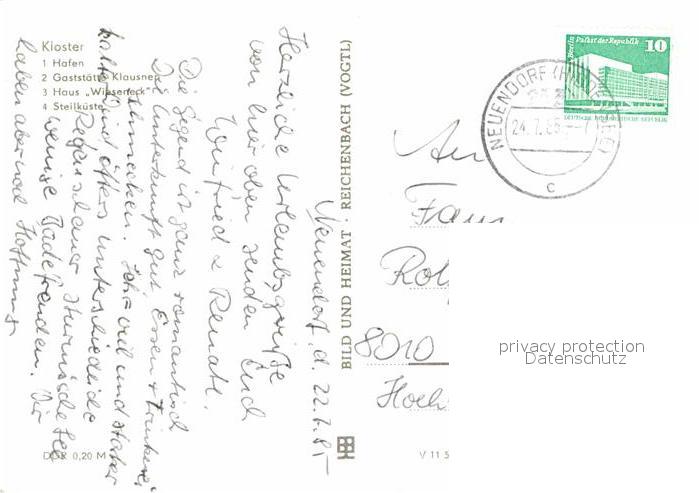 Kloster
1 Hafen
2 Gaststätte Klausner
3 Haus „Wieseneck"
4 Steilküste
Neuendorf, d. 22.7.85
Herzliche Urlaubsgrüße
von hier oben senden Euch
Winfried & Renate.
Die Gegend ist ganz romantisch
Die Unterkunft gut, Essen + Trinken
schmecken. Sehr viel und starker
kalter Wind öfters unterschiedliche
Regenschauer stürmische See
wenige Badefreuden. Wir
haben aber noch Hoffnung
DDR 0,20 M
BILD UND HEIMAT REICHENBACH (VOGTL)
V 11 5
Berlin Palast der Republik
10
DEUTSCHE DEMOKRATISCHE REPUBLIK
NEUENDORF
24.7.85
c
An
Fam
Rol
8010
Hoch
privacy protection
Datenschutz